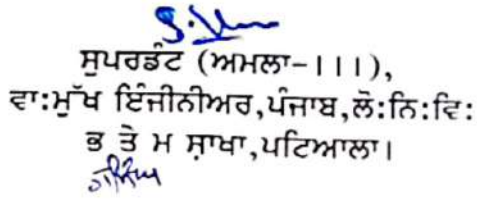 ਸੁਪਰਡੰਟ (ਅਮਲਾ-।।।),
ਵਾ:ਮੁੱਖ ਇੰਜੀਨੀਅਰ,ਪੰਜਾਬ,ਲੋ:ਨਿ:ਵਿ:
ਭ ਤੇ ਮ ਸ਼ਾਖਾ,ਪਟਿਆਲਾ।